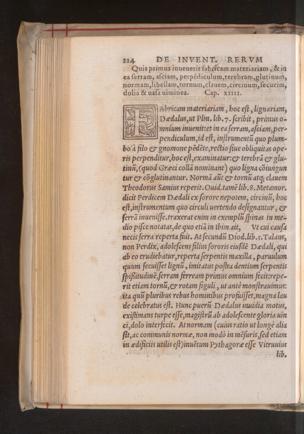 224 DE INVENT. RERVM
Quis primus inuenerit fabricam materiariam, & in
ea serram, asciam, perpēdiculum, terebram, glutinum,
normam, libellam, tornum, clauem, circinum, securim,
dolia & uasa uiminea. Cap. XIIII.
FAbricam materiariam, hoc est, lignariam,
Dædalus, ut Plin. lib. 7. scribit, primus o-
mnium inuenit: et in ea serram, asciam, per-
pendiculum, id est, instrumentū quo plum-
bo à filo & gnomone pēdēte, rectio siue obliquitas ope
ris perpenditur, hoc est, examinatur: & terebrā & glu-
tinū, (quod Græci collā nominant) quo ligna cōiungun
tur & cōglutinantur. Normā aūt & tornū atq; clauem
Theodorus Samius reperit. Ouid. tamē lib. 8. Metamor.
dicit Perdicem Dædali ex sorore nepotem, circinū, hoc
est, instrumentum quo circuli uertendo designantur, &
serrā inuenisse. traxerat enim in exemplū spinas in me-
dio pisce notatas, de quo etiā in Ibim ait, Vt cui causa
necis serra reperta fuit. At secundū Diod. lib. 5. Talaus,
non Perdix, adolescens filius sororis eiusdē Dædali, qui
ab eo erudiebatur, reperta serpentis maxilla, paruulum
quum secuisset lignū, imitatus postea dentium serpentis
spissitudinē serram ferream primus omnium fecit: repe-
rit etiam tornū, & rotam figuli, ut antè monstrauimus:
ita quū pluribus rebus hominibus profuisset, magna lau
de celebratus est. Hunc puerū Dædalus inuidia motus,
existimans turpe esse, magistrū ab adolescente gloria uin
ci, dolo interfecit. At normam (cuius ratio ut longè alia
sit, ac communis normæ, non modò in mēsuris, sed etiam
in ædificijs utilis est) inuētum Pythagoræ esse Vitruuius
lib.